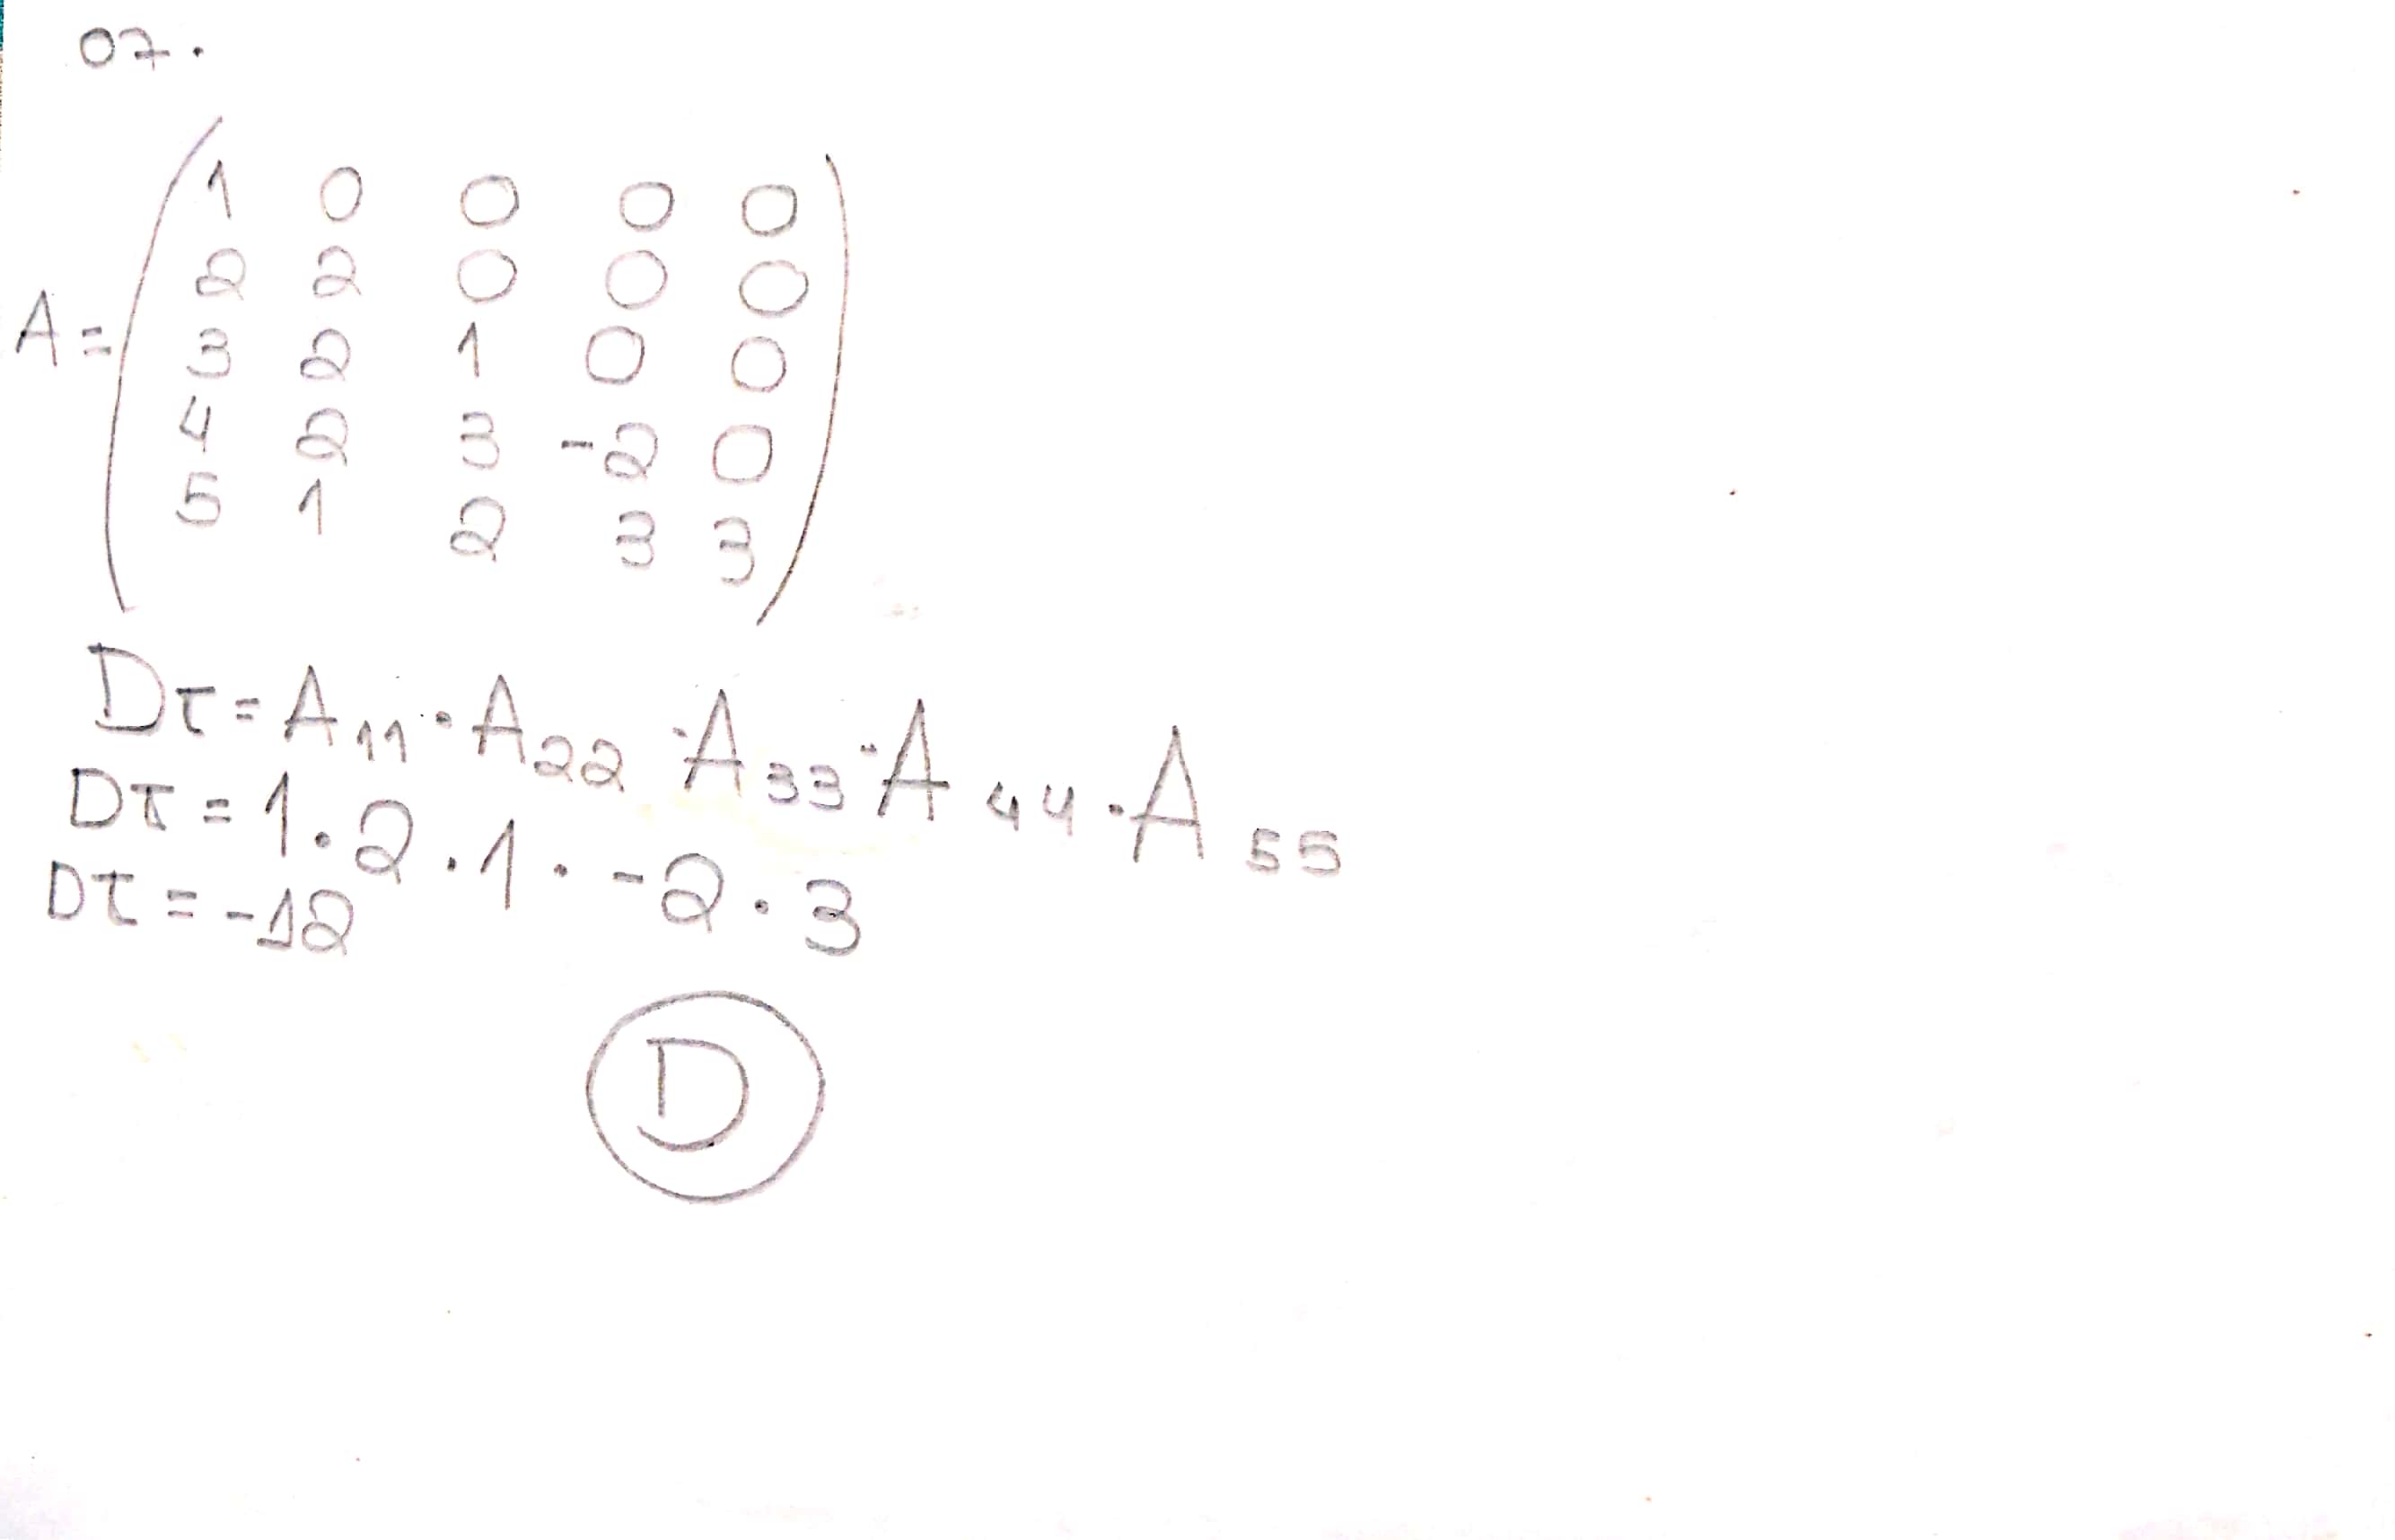 07.
1 0 0 0 0
2 2 0 0 0
A = 3 2 1 0 0
4 2 3 -2 0
5 1 2 3 3
Dτ = A11 · A22 · A33 · A44 · A55
Dτ = 1 · 2 · 1 · -2 · 3
Dτ = -12
D